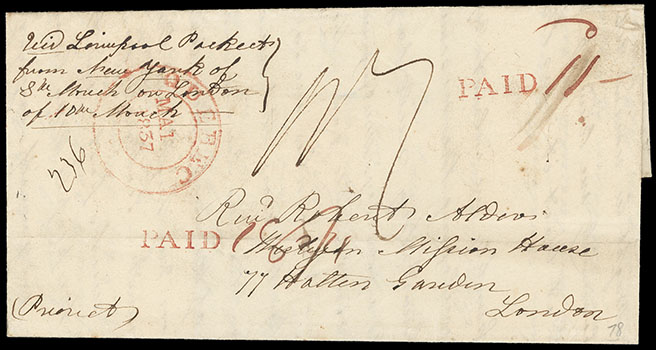 Via Liverpool Packets
from New York of
8th March or London
of 10th March
QUEBEC
MA1
1837
PAID 11
236
Revd Robert Alder
PAID
Wesleyan Mission House
77 Hatton Garden
London
78